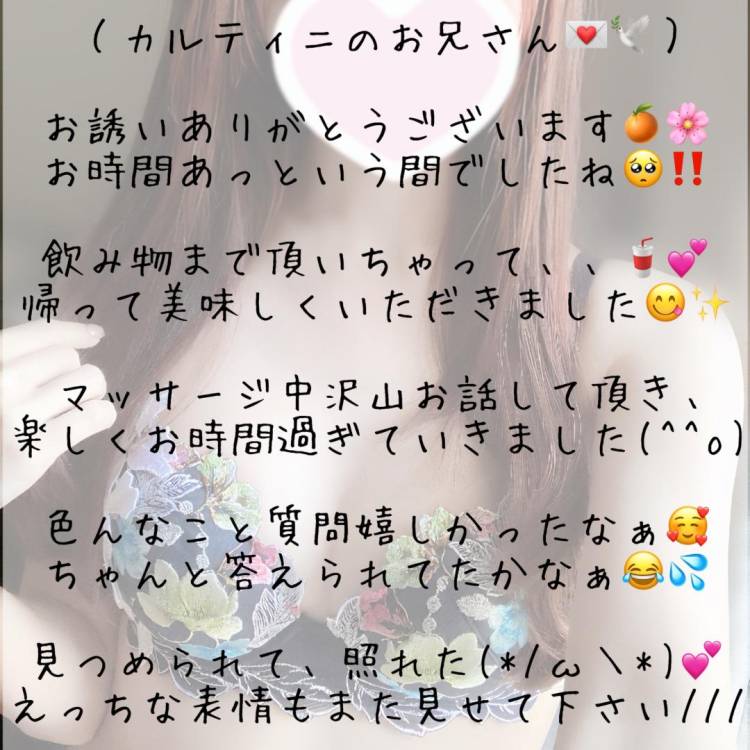 ( カルティニのお兄さん💌🕊️ )
お誘いありがとうございます🍊🌸
お時間あっという間でしたね🥺‼️
飲み物まで頂いちゃって、、🥤💕
帰って美味しくいただきました😋✨
マッサージ中沢山お話して頂き、
楽しくお時間過ぎていきました(^^o)
色んなこと質問嬉しかったなぁ🥰
ちゃんと答えられてたかなぁ😂💦
見つめられて、照れた(*/ω＼*)💕
えっちな表情もまた見せて下さい///